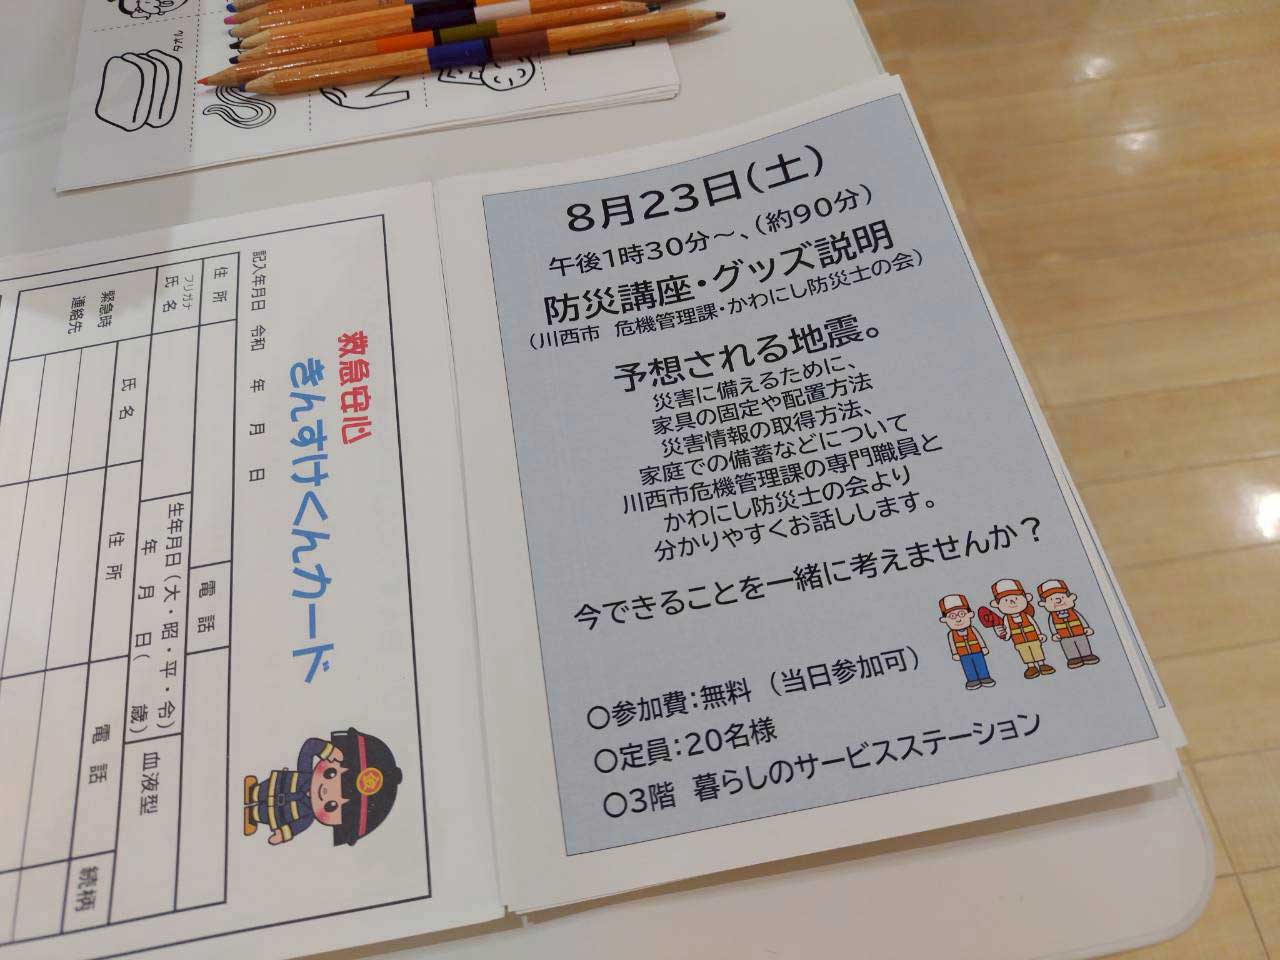 8月23日(土)
午後1時30分～、(約90分)
防災講座・グッズ説明
(川西市 危機管理課・かわにし防災士の会)
予想される地震。
災害に備えるために、
家具の固定や配置方法
災害情報の取得方法、
家庭での備蓄などについて
川西市危機管理課の専門職員と
かわにし防災士の会より
分かりやすくお話しします。
今できることを一緒に考えませんか？
○参加費：無料 (当日参加可)
○定員：20名様
○3階 暮らしのサービスステーション
救急安心
きんすけくんカード
記入年月日 令和 年 月 日
住所
フリガナ
氏名
電話
生年月日(大・昭・平・令)
年 月 日( 歳)
血液型
緊急時
連絡先
氏名
住所
電話
続柄